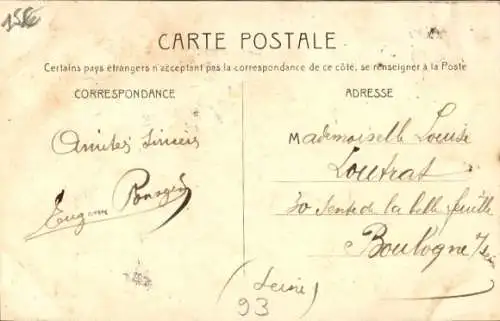 15€
CARTE POSTALE
Certains pays étrangers n'acceptant pas la correspondance de ce côté, se renseigner à la Poste
CORRESPONDANCE
ADRESSE
Amitiés Sincères
Eugène
Mademoiselle Louise
Loutrat
30 Sente de la belle feuille
Boulogne s/Seine
(Seine)
93